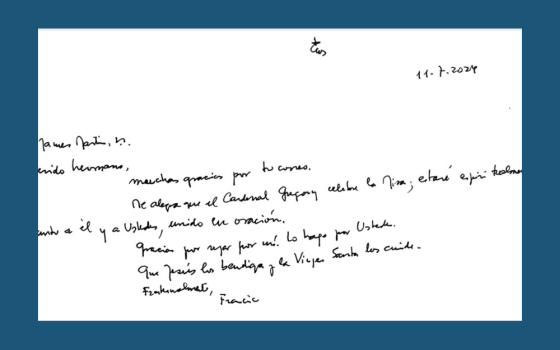 11.7.2024
James Martin, s.j.
erido hermano,
muchas gracias por tu correo.
Me alegra que el Cardenal Gregory celebre la Misa; estaré espiritualmen
unto a él y a Ustedes, unido en oración.
Gracias por rezar por mí. Lo hago por Ustedes.
Que Jesús los bendiga y la Virgen Santa los cuide.
Fraternalmente,
Francisc